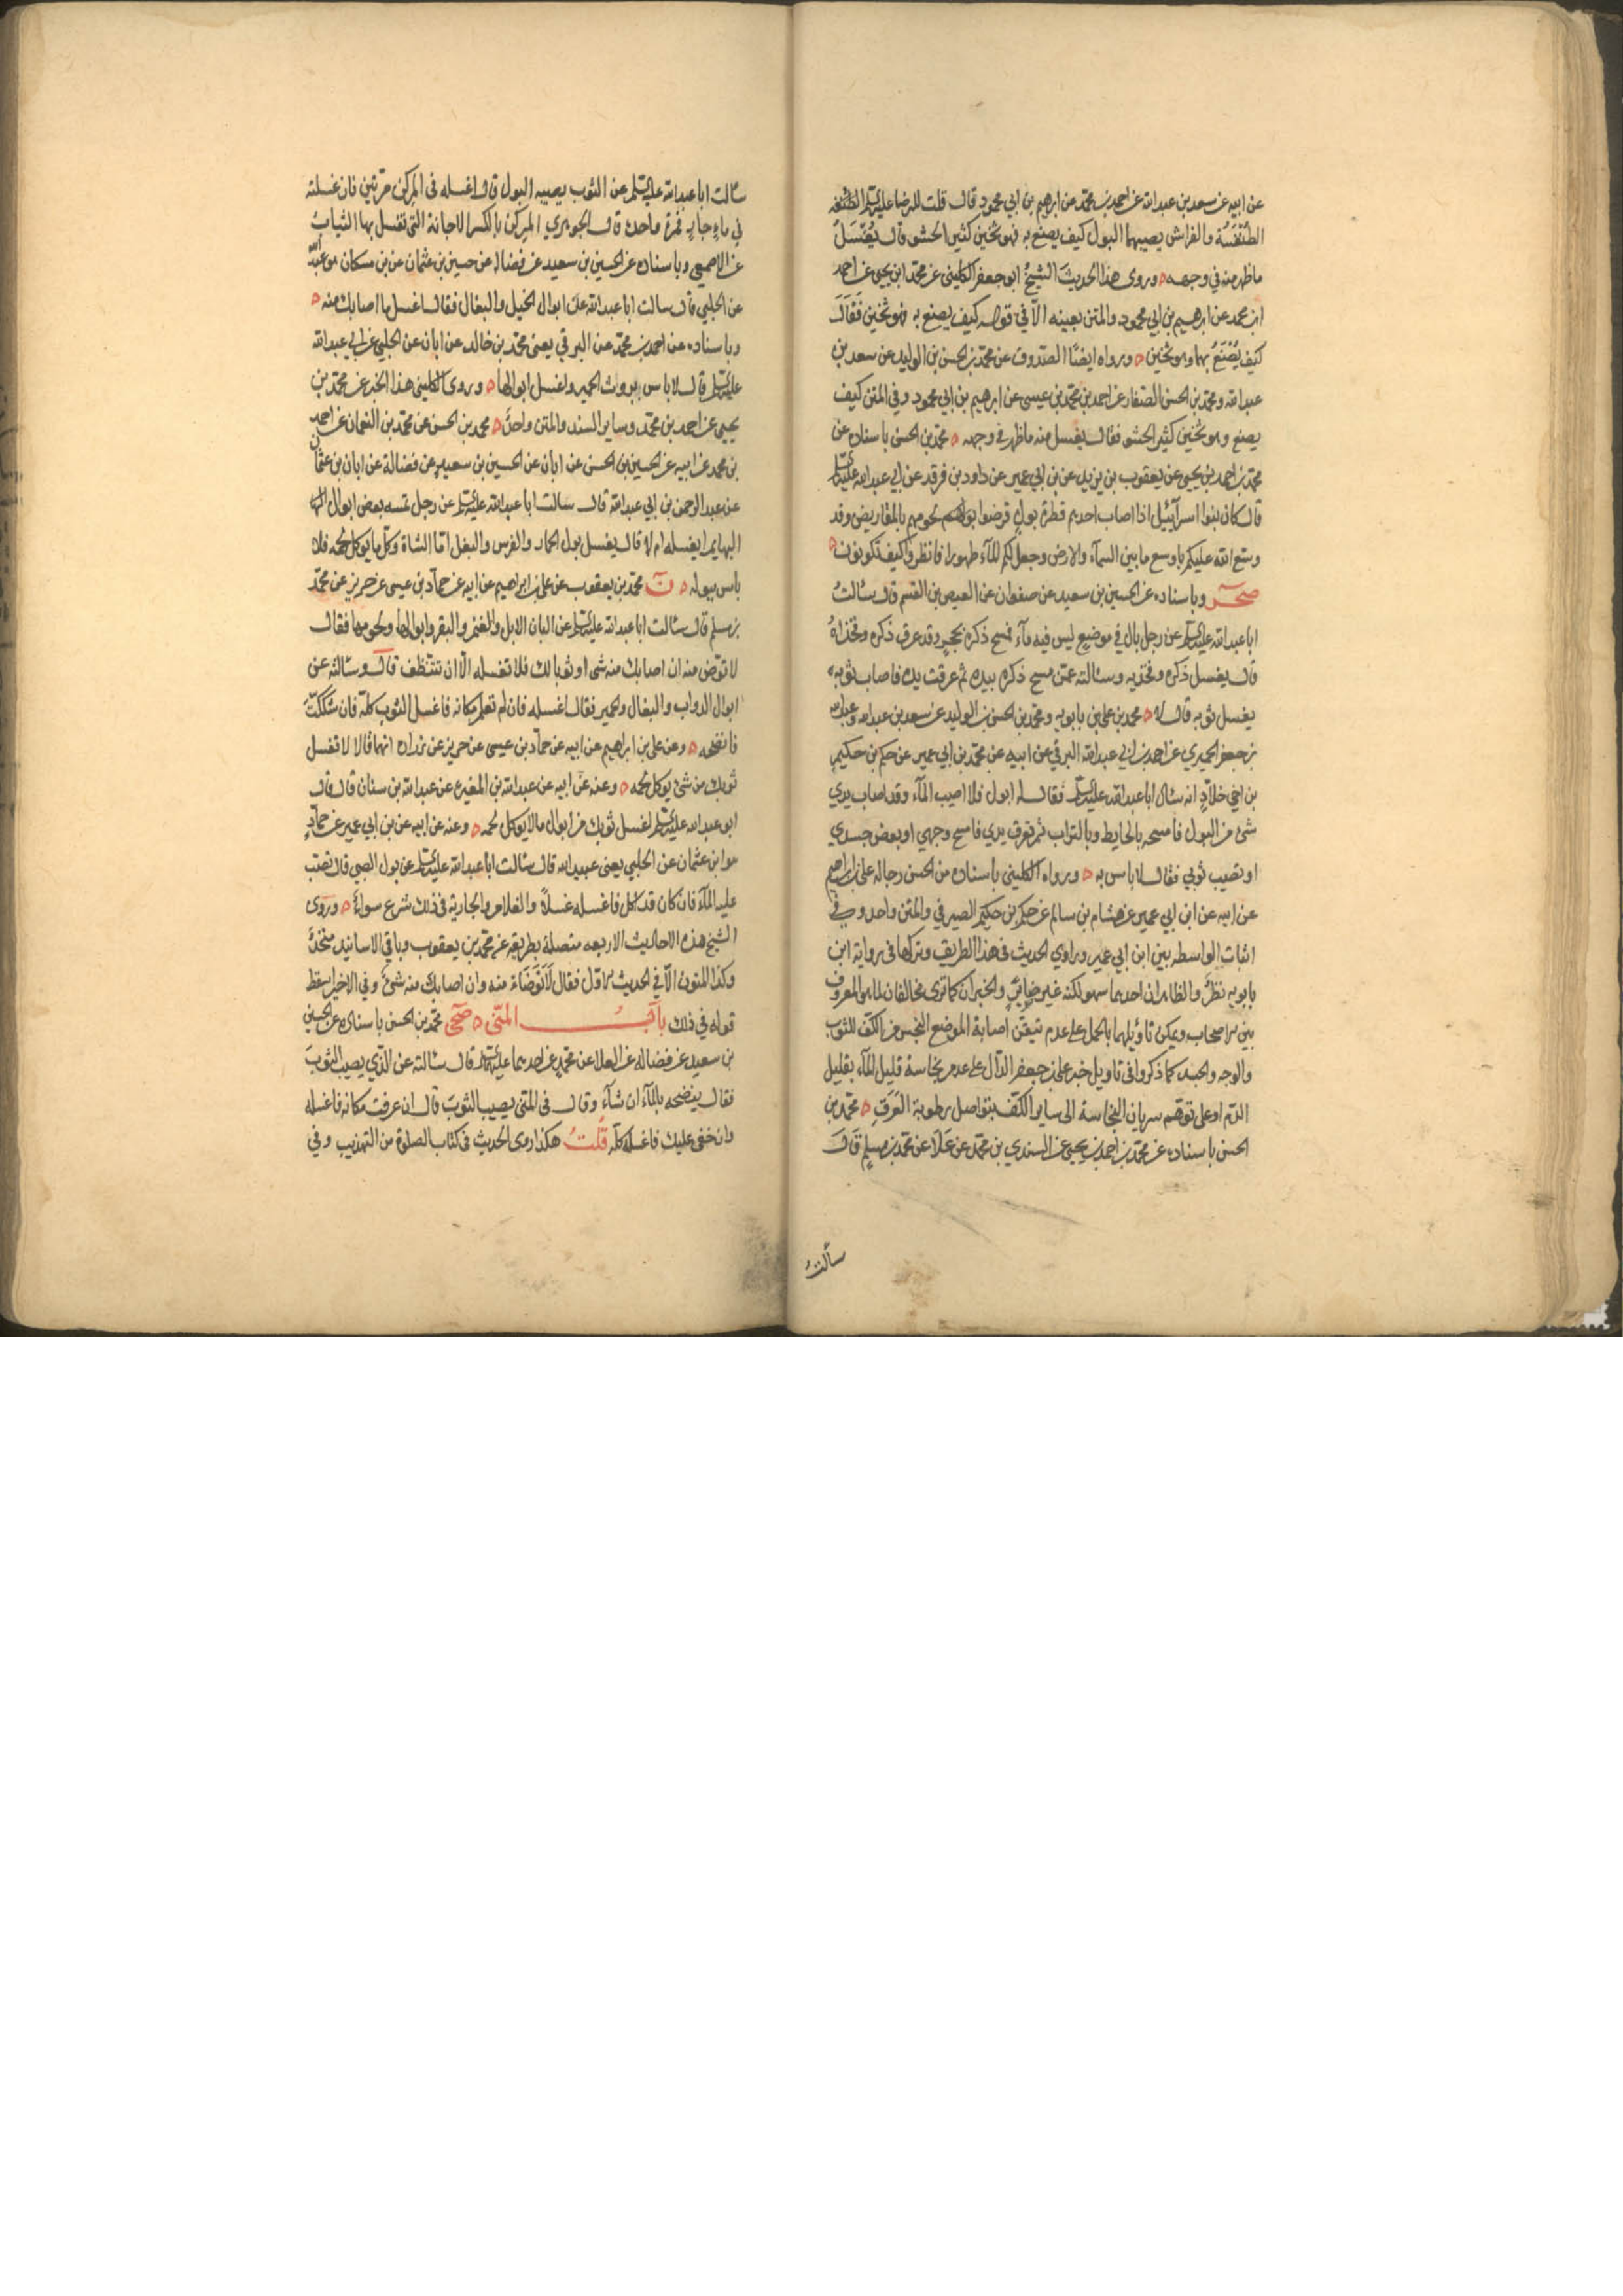 عن ابيه عن سعد بن عبد الله عن احمد بن محمد عن ابرهيم بن ابي محمود قال قلت للرضا عليه السلم الطنفسه
الطنفسة والفراش يصيبهما البول كيف يصنع به فهو ثخين كثير الحشو قال يغسل
ما ظهر منه في وجهه ٥ وروى هذا الحديث الشيخ ابو جعفر الكليني عن محمد ابن يحيى عن احمد
ابن محمد عن ابرهيم بن ابي محمود والمتن بعينه الا في قوله كيف يصنع به فهو ثخين فقال
كيف يصنع بهما وهو ثخين ٥ ورواه ايضًا الصدوق عن محمد بن الحسن بن الوليد عن سعد بن
عبد الله ومحمد بن الحسن الصفار عن احمد بن محمد بن عيسى عن ابرهيم بن ابي محمود وفي المتن كيف
يصنع وهو ثخين كثير الحشو فقال يغسل منه ما ظهر في وجهه ٥ محمد بن الحسن باسناده عن
محمد بن احمد بن يحيى عن يعقوب بن يزيد عن بن ابي عمير عن داود بن فرقد عن ابي عبد الله عليه السلم
قال كان بنوا اسرآئيل اذا اصاب احدهم قطرة بول قرضوا لحومهم بالمقاريض وقد
وسع الله عليكم باوسع ما بين السمآء والارض وجعل لكم المآء طهورا فانظروا كيف تكونون ٥
صحر وباسناده عن الحسين بن سعيد عن صفوان عن العيص بن القسم قال سئالت
ابا عبد الله عليه السلم عن رجل بال في موضع ليس فيه مآء فمسح ذكره بحجر وقد عرق ذكره وفخذاه
قال يغسل ذكره وفخذيه وسئالته عمن مسح ذكره بيده ثم عرقت يده فاصاب ثوبه
يغسل ثوبه قال لا ٥ محمد بن علي بن بابويه ومحمد بن الحسن بن الوليد عن سعد بن عبد الله وعبد الله
بن جعفر الحميري عن احمد بن ابي عبد الله البرقي عن ابيه عن محمد بن ابي عمير عن حكم بن حكيم
بن اخي خلاد انه سئال ابا عبد الله عليه السلم فقال له ابول فلا اصيب المآء وقد اصاب يدي
شئ من البول فامسحه بالحايط وبالتراب ثم تعرق يدي فامسح وجهي او بعض جسدي
او تصيب ثوبي فقال لا باس به ٥ ورواه الكليني باسناده من الحسن رجاله علي بن ابراهيم
عن ابيه عن ابن ابي عمير عن هشام بن سالم عن حكم بن حكيم الصيرفي والمتن واحد وفي
اثبات الواسطه بين ابن ابي عمير وراوي الحديث في هذا الطريق وتركها في رواية ابن
بابويه نظر والظاهر ان احدهما سهو لكنه غير ضائر والخبران كما ترى مخالفان لما هو المعروف
بين الاصحاب ويمكن تاويلهما بالحمل على عدم تيقن اصابة الموضع النجس من الكف للثوب
والوجه والجسد كما ذكروا في تاويل خبر علي بن جعفر الدال على عدم نجاسة قليل المآء بقليل
الدم او على توهم سريان النجاسة الى ساير الكف بتواصل رطوبة العرق ٥ محمد بن
الحسن باسناده عن محمد بن احمد بن يحيى عن السندي بن محمد عن علا عن محمد بن مسلم قال
سألت
سئالت ابا عبد الله عليه السلم عن الثوب يصيبه البول قال اغسله في المركن مرتين فان غسلته
في مآء جار فمرة واحدة قال الجوهري المركن بالكسر الاجانة التي تغسل بها الثياب
عن الاصمعي وباسناده عن الحسين بن سعيد عن فضاله عن حسين بن عثمان عن بن مسكان
عن الحلبي قال سالت ابا عبد الله عن ابوال الخيل والبغال فقال اغسل ما اصابك منه ٥
وباسناده عن احمد بن محمد عن البرقي يعني محمد بن خالد عن ابان عن الحلبي عن ابي عبد الله
عليه السلم قال لا باس بروث الحمير واغسل ابوالها ٥ وروى الكليني هذا الخبر عن محمد بن
يحيى عن احمد بن محمد وساير السند والمتن واحد ٥ محمد بن الحسن عن محمد بن النعمان عن احمد
بن محمد عن ابيه عن الحسين بن الحسن عن ابان عن الحسين بن سعيد عن فضالة عن ابان بن عثمان
عن عبد الرحمن بن ابي عبد الله قال سالت ابا عبد الله عليه السلم عن رجل يمسه بعض ابوال
البهايم ايغسله ام لا قال يغسل بول الحمار والفرس والبغل اما الشاة وكل ما يوكل لحمه فلا
باس ببوله ٥ ن محمد بن يعقوب عن علي بن ابراهيم عن ابيه عن حماد بن عيسى عن حريز عن محمد
بن مسلم قال سئالت ابا عبد الله عليه السلم عن البان الابل والغنم والبقر وابوالها ولحومها فقال
لا توض منه ان اصابك منه شئ او ثوبا لك فلا تغسله الا ان تتنظف قال وسئالته عن
ابوال الدواب والبغال والحمير فقال اغسله فان لم تعلم مكانه فاغسل الثوب كله فان شككت
فانضحه ٥ وعن علي بن ابراهيم عن ابيه عن حماد بن عيسى عن حريز عن زراره انهما قالا لا تغسل
ثوبك من شئ يوكل لحمه ٥ وعنه عن ابيه عن عبد الله بن المغيره عن عبد الله بن سنان قال قال
ابو عبد الله عليه السلم اغسل ثوبك من ابوال ما لا يوكل لحمه ٥ وعنه عن ابيه عن بن ابي عمير عن حماد
هو ابن عثمان عن الحلبي يعني عبيد الله قال سئالت ابا عبد الله عليه السلم عن بول الصبي قال تصب
عليه المآء فان كان قد اكل فاغسله غسلاً والغلام والجارية في ذلك شرع سواء ٥ وروى
الشيخ هذه الاحاديث الاربعه متصلة بطريقه عن محمد بن يعقوب وباقي الاسانيد متحدة
وكذا المتون الا في الحديث الاول فقال لا توضاء منه وان اصابك منه شئ وفي الاخير اسقط
قوله في ذلك باب المنى ٥ صحى محمد بن الحسن باسناده عن الحسين
بن سعيد عن فضاله عن العلا عن محمد عن احدهما عليهما السلم قال سئالته عن الذي يصيب الثوب
فقال ينضحه بالمآء ان شآء وقال في المنى يصيب الثوب قال ان عرفت مكانه فاغسله
وان خفي عليك فاغسله كله قلت هكذا روى الحديث في كتاب الصلوة من التهذيب وفي